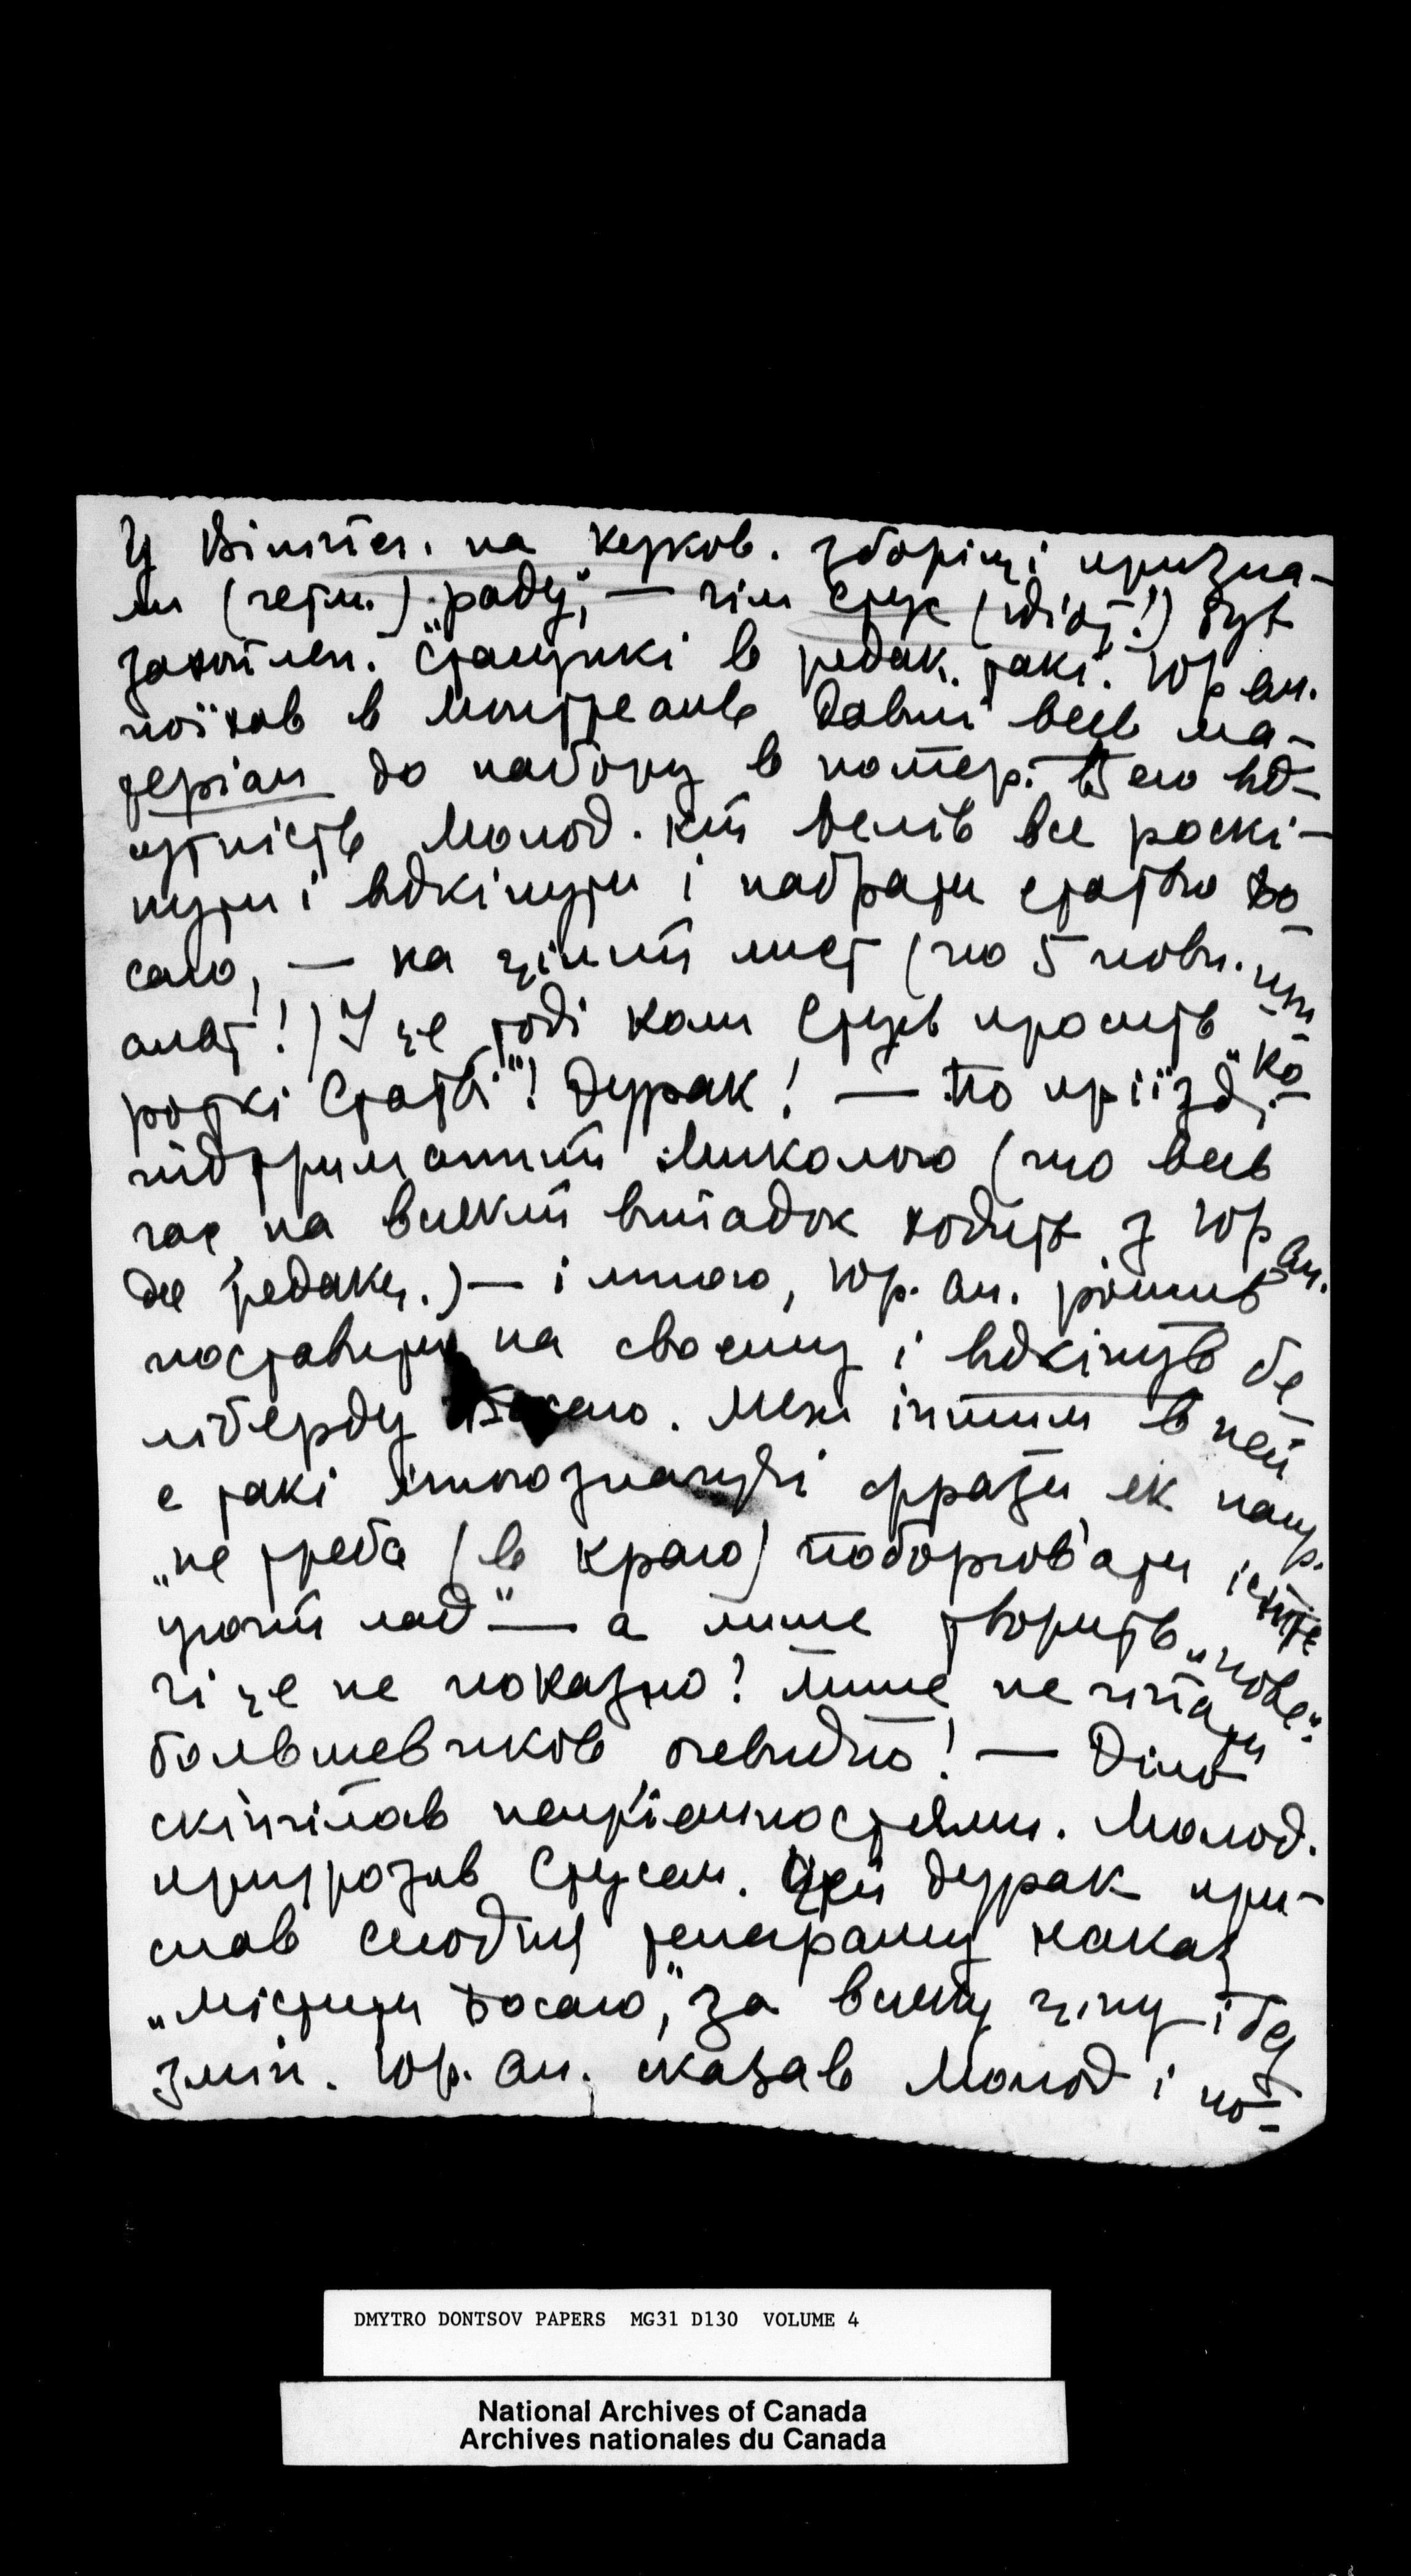 У Вінніпег. на церков. зборіщі призна-
ли (гетм.) "раду", — чім Стус (ідіот!) був
захоплен. Стосунки в редак. такі. Юр ол.
поїхав в Монтреаль давши весь ма-
теріал до набору в номер. В его від-
сутність Молод. кій велів все роскі-
нути і відкінути і набрати статью Бо
саго, — на цілий лист (що 5 повн.
шпалт!) І це тоді коли Стусь просить "ко-
роткі статі"! Дурак! — По приїзді,
підтриманий Миколою (що весь
час, на всякий випадок ходить з Юр ол.
до редакц.) — і мною, Юр. ол. рішив
поставити на своєму і відкінув бе
ліберду Босаго. Між іншим в ней
є такі многозначучі фрази, як напр.
"не треба (в краю) поборювати існу
ючий лад" — а лише творить "нове".
Чі це не показно? Лише не чіпати
большевиків очевидно! — Діло
скінчілось непріємностями. Молод.
пригрозив Стусом. Цей дурак при-
слав сьогодня телеграму наказ
"містити Босаго", за всяку ціну і без
змін. Юр. ол. сказав Молод і по-
DMYTRO DONTSOV PAPERS MG31 D130 VOLUME 4
National Archives of Canada
Archives nationales du Canada